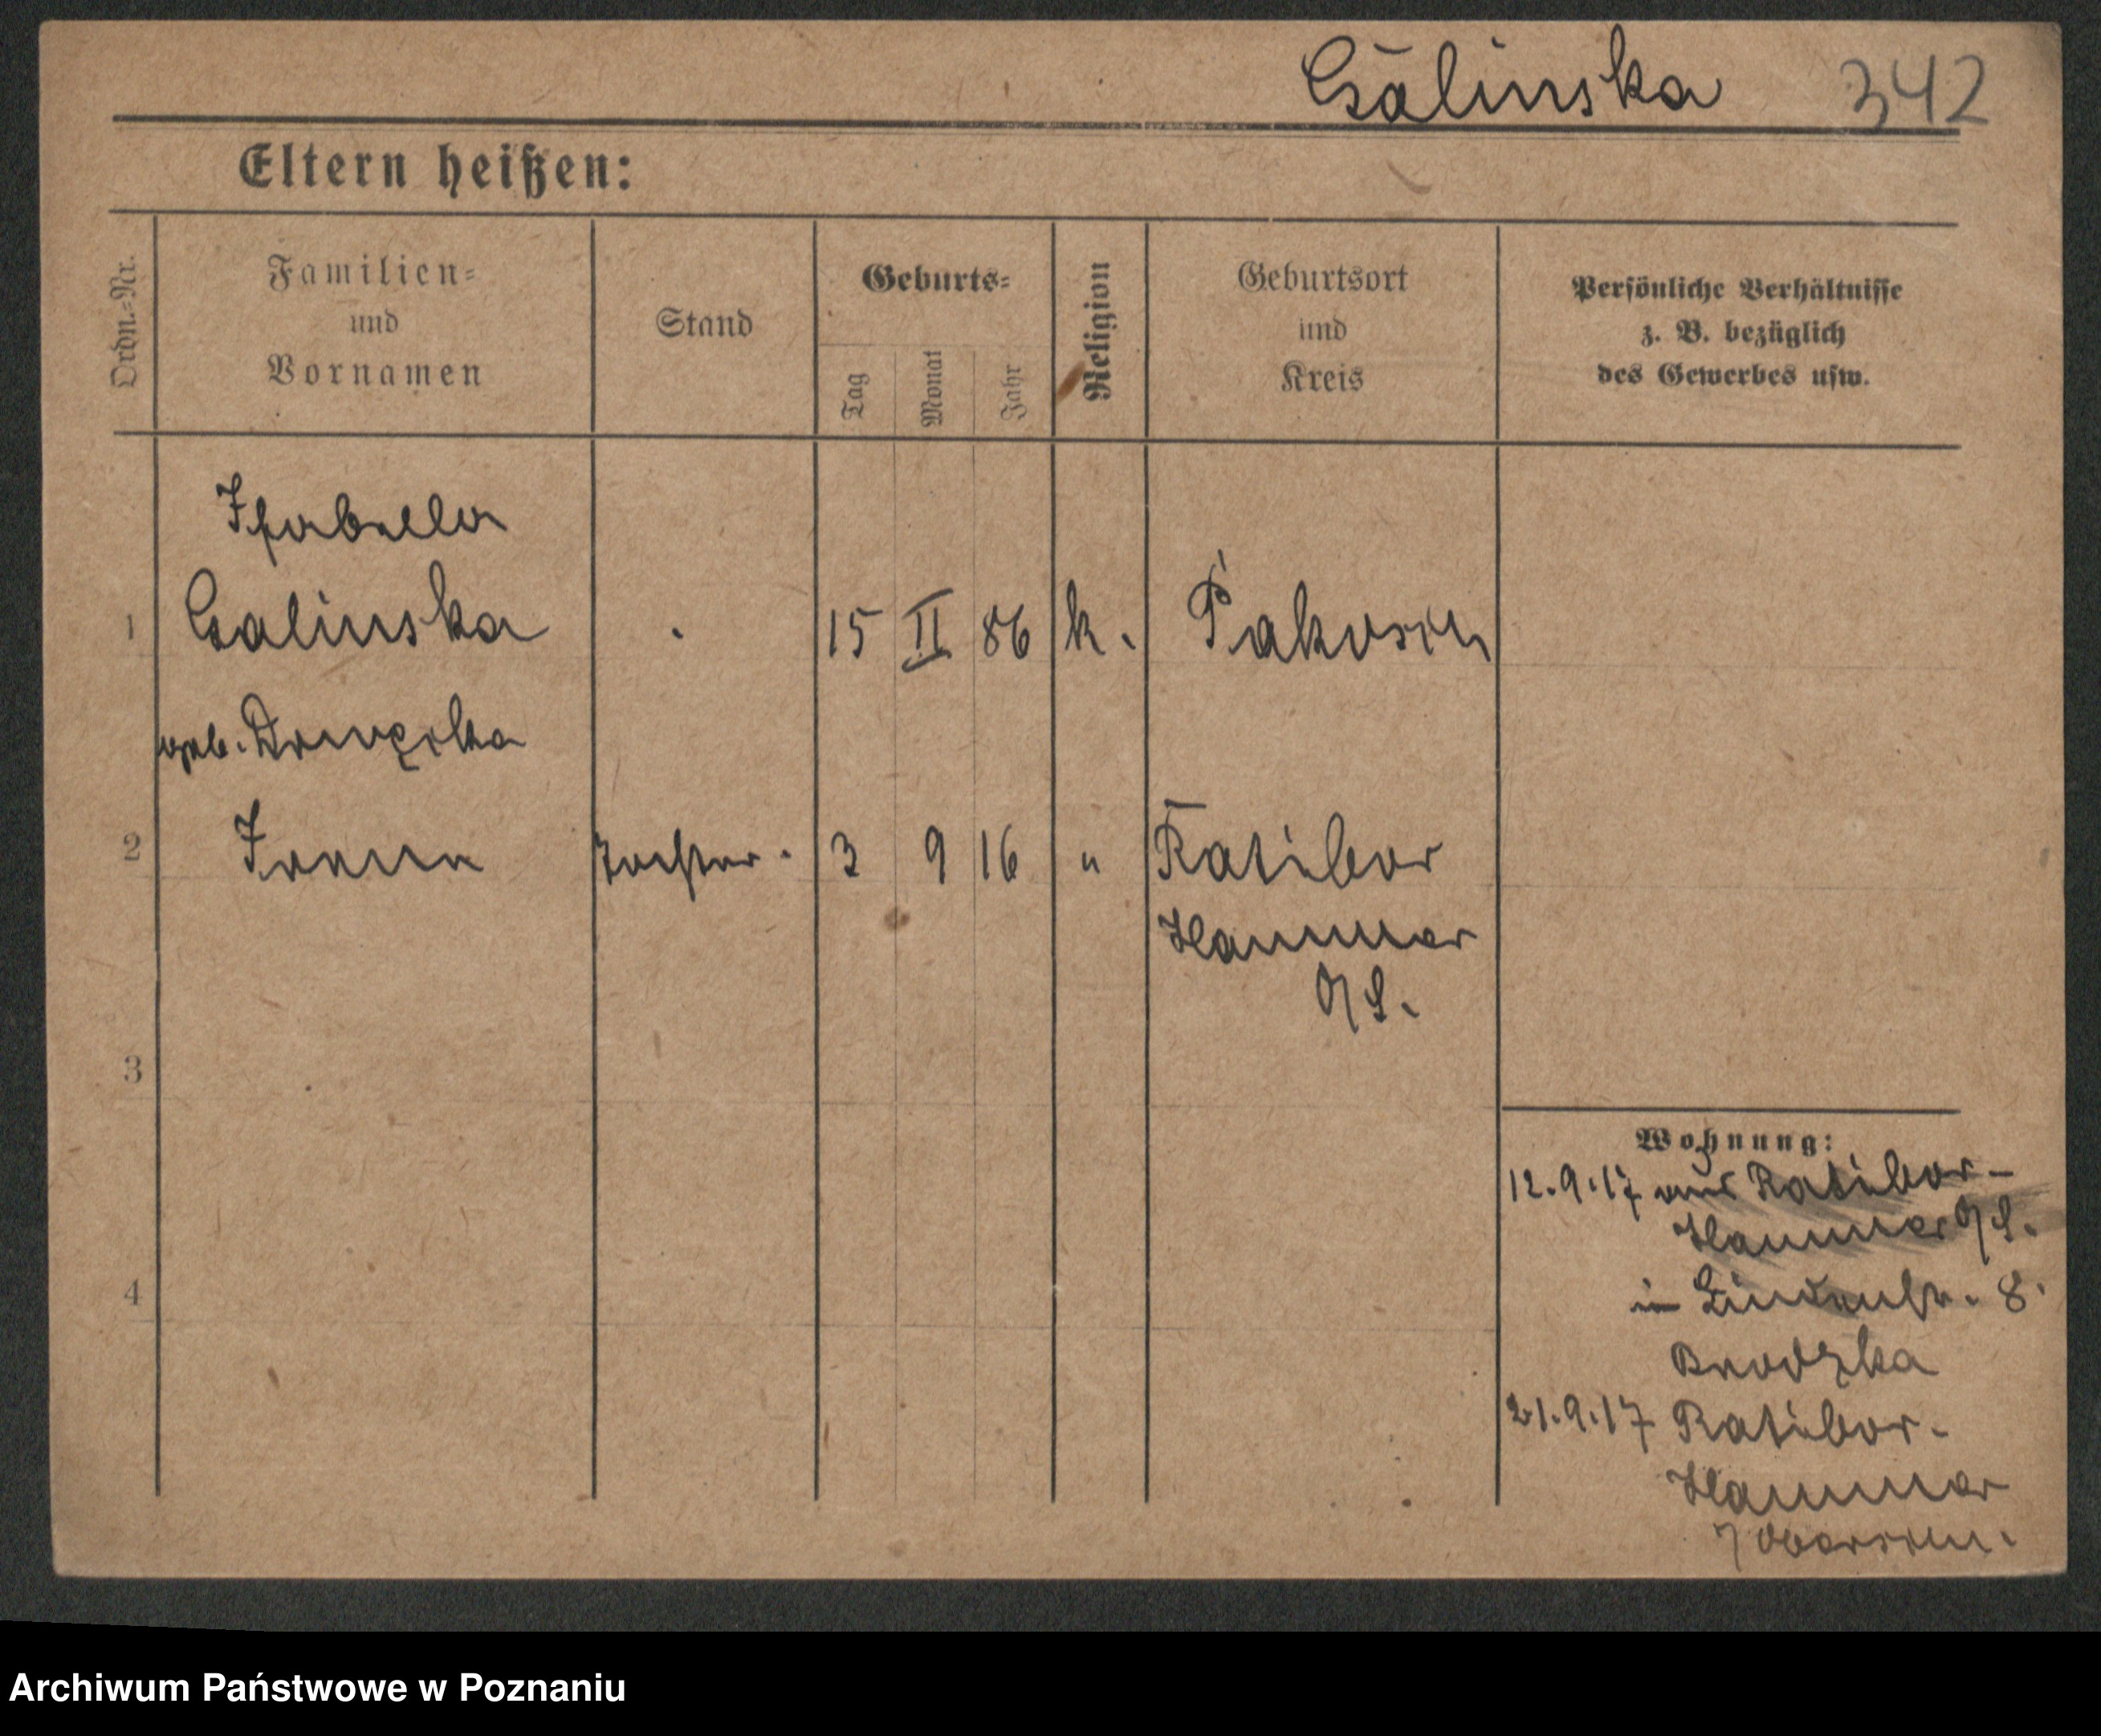 Galinska 342
Eltern heißen:
Ordn.-Nr.
Familien-
und
Vornamen
Stand
Geburts-
Tag
Monat
Jahr
Religion
Geburtsort
und
Kreis
Persönliche Verhältnisse
z. B. bezüglich
des Gewerbes usw.
Isabella
1 Galinska 15 II 86 k. Pakosch
geb.
2 Irene Tochter 3 9 16 " Ratibor
Hammer
O/S.
3
4
Wohnung:
12.9.17 aus Ratibor-
Hammer O/S.
in Lindenstr. 8.
21.9.17 Ratibor-
Hammer
Archiwum Państwowe w Poznaniu